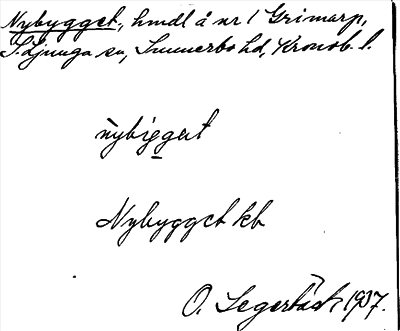 Nybygget, hmdl å nr 1 Grimarp,
S. Ljunga sn, Sunnerbo hd, Kronob. l.
nybiggert
Nybygget kb
O. Segerbäck 1937.